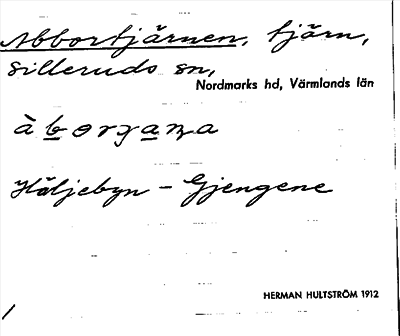 Abbortjärnen, tjärn,
Silleruds sn,
Nordmarks hd, Värmlands län
Häljebyn - Gjengene
HERMAN HULTSTRÖM 1912